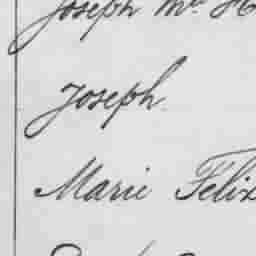 Joseph Mc
Joseph
Marie Felix